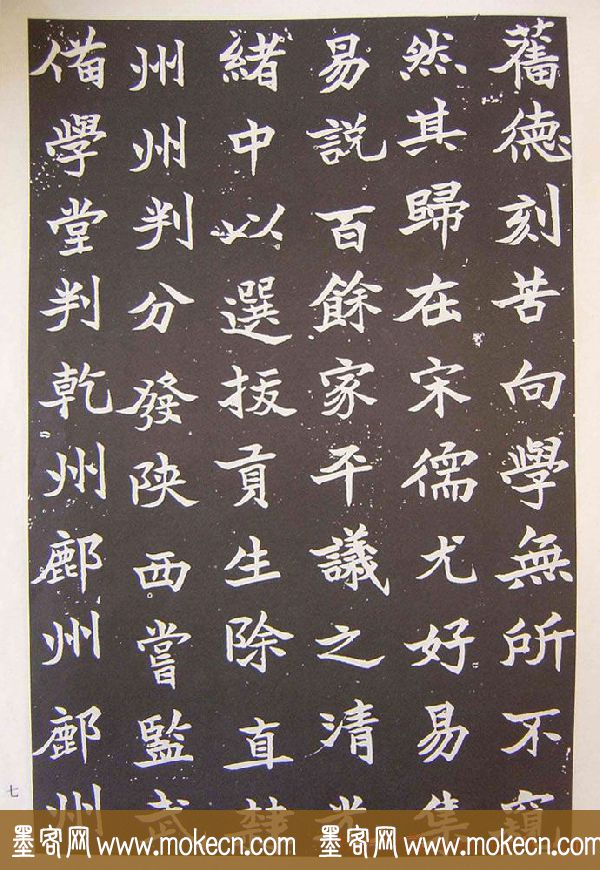 蓄德刻苦向學無所不窺
然其歸在宋儒尤好易集
易說百餘家平議之清光
緒中以選拔貢生除直隸
州州判分發陝西嘗監武
備學堂判乾州鄜州鄜州
七
墨客网 www.mokecn.com 墨客网 www.mokecn.com